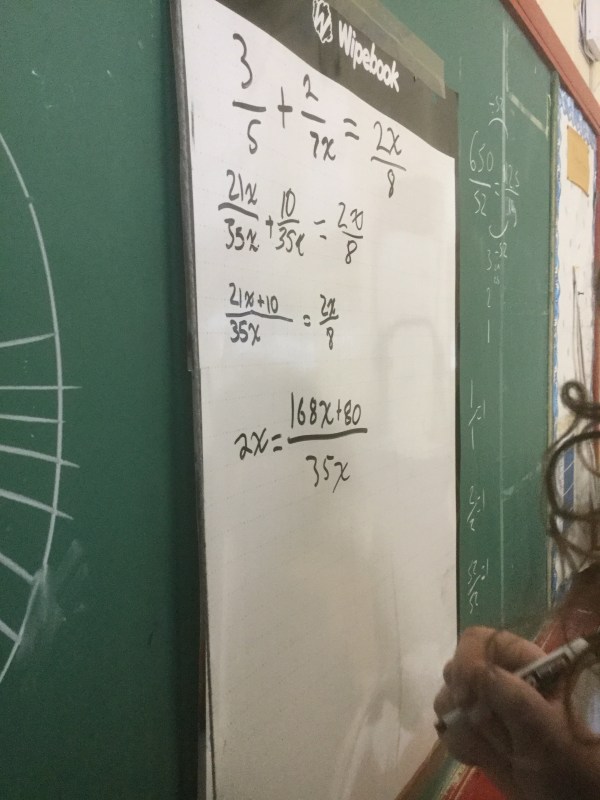 Wipebook
3/5 + 2/7x = 2x/8
21x/35x + 10/35x = 2x/8
21x+10/35x = 2x/8
2x = 168x+80/35x
650/52